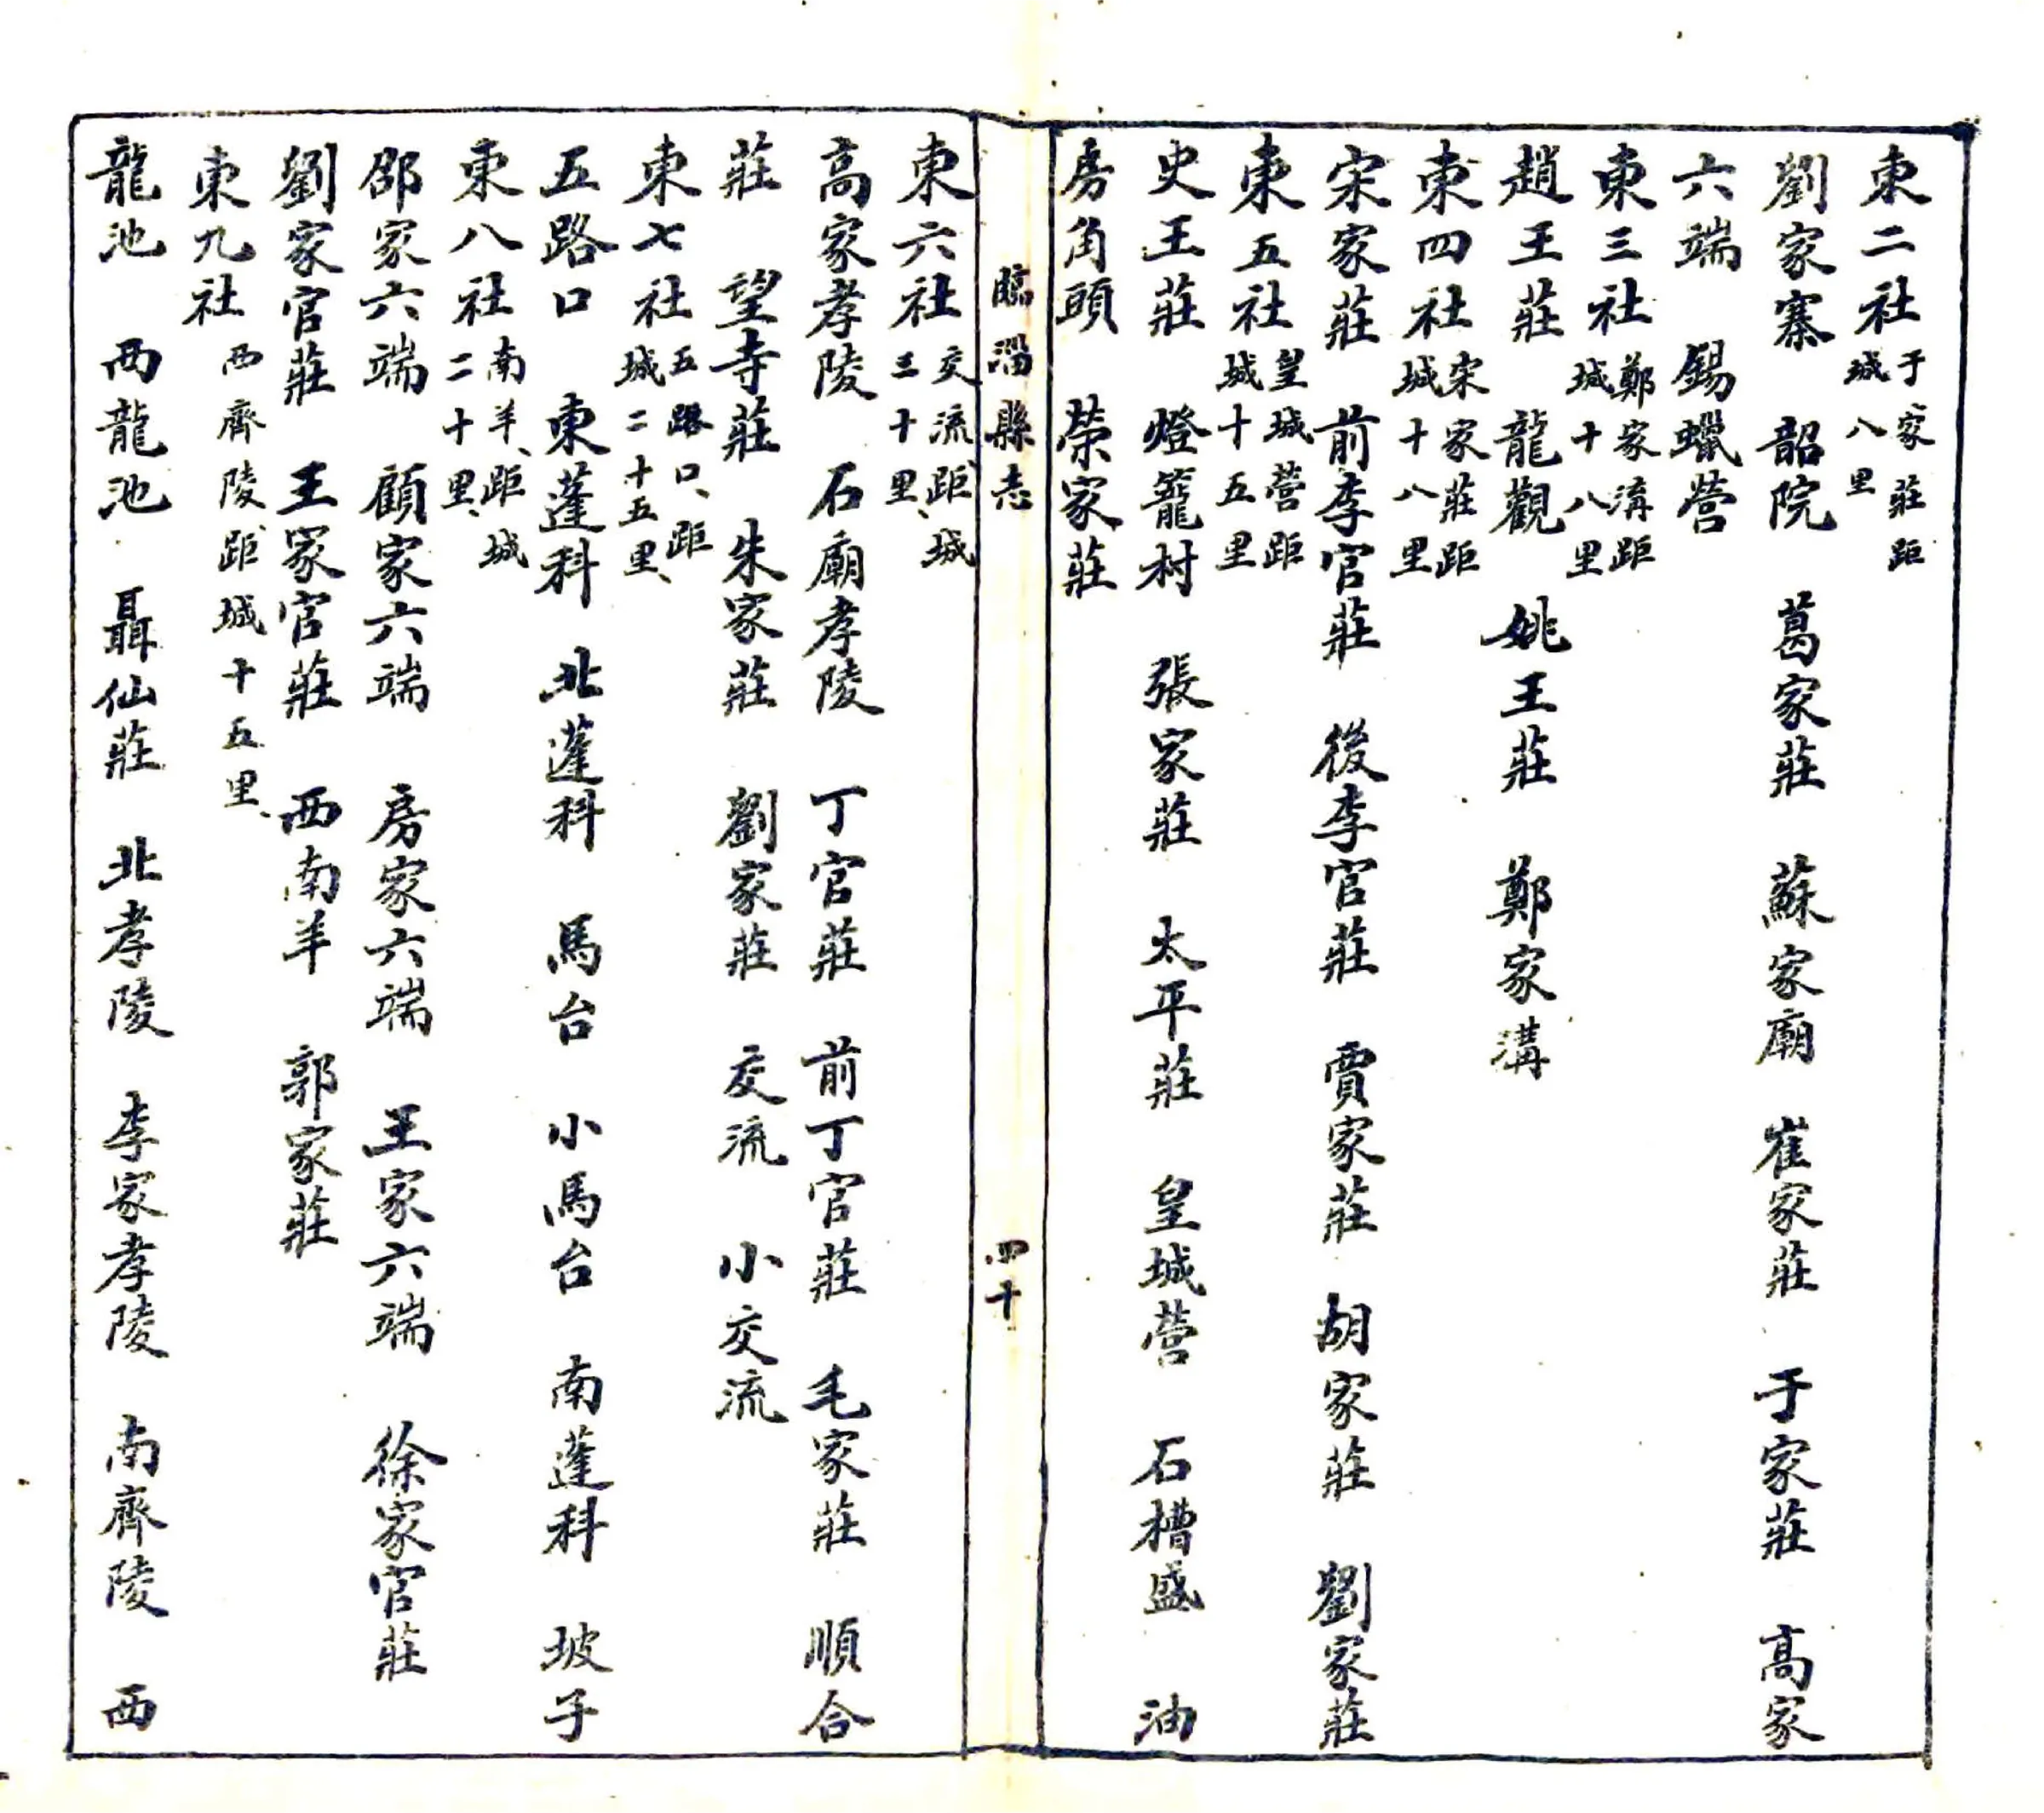 東二社 于家莊距城八里
劉家寨 韶院 葛家莊 蘇家廟 崔家莊 于家莊 高家
六端 錫蠟營
東三社 鄭家溝距城十八里
趙王莊 龍觀 姚王莊 鄭家溝
東四社 宋家莊距城十八里
宋家莊 前李官莊 後李官莊 賈家莊 胡家莊 劉家莊
東五社 皇城營距城十五里
史王莊 燈籠村 張家莊 太平莊 皇城營 石槽盛 油
房角頭 榮家莊
臨淄縣志 四十
東六社 交流、距城三十里、
高家孝陵 石廟孝陵 丁官莊 前丁官莊 毛家莊 順合
莊 望寺莊 朱家莊 劉家莊 交流 小交流
東七社 五路口、距城二十五里、
五路口 東蓬科 北蓬科 馬台 小馬台 南蓬科 坡子
東八社 南羊、距城二十里、
邵家六端 顧家六端 房家六端 王家六端 徐家官莊
劉家官莊 王家官莊 西南羊 郭家莊
東九社 西齊陵、距城十五里、
龍池 西龍池 聶仙莊 北孝陵 李家孝陵 南齊陵 西